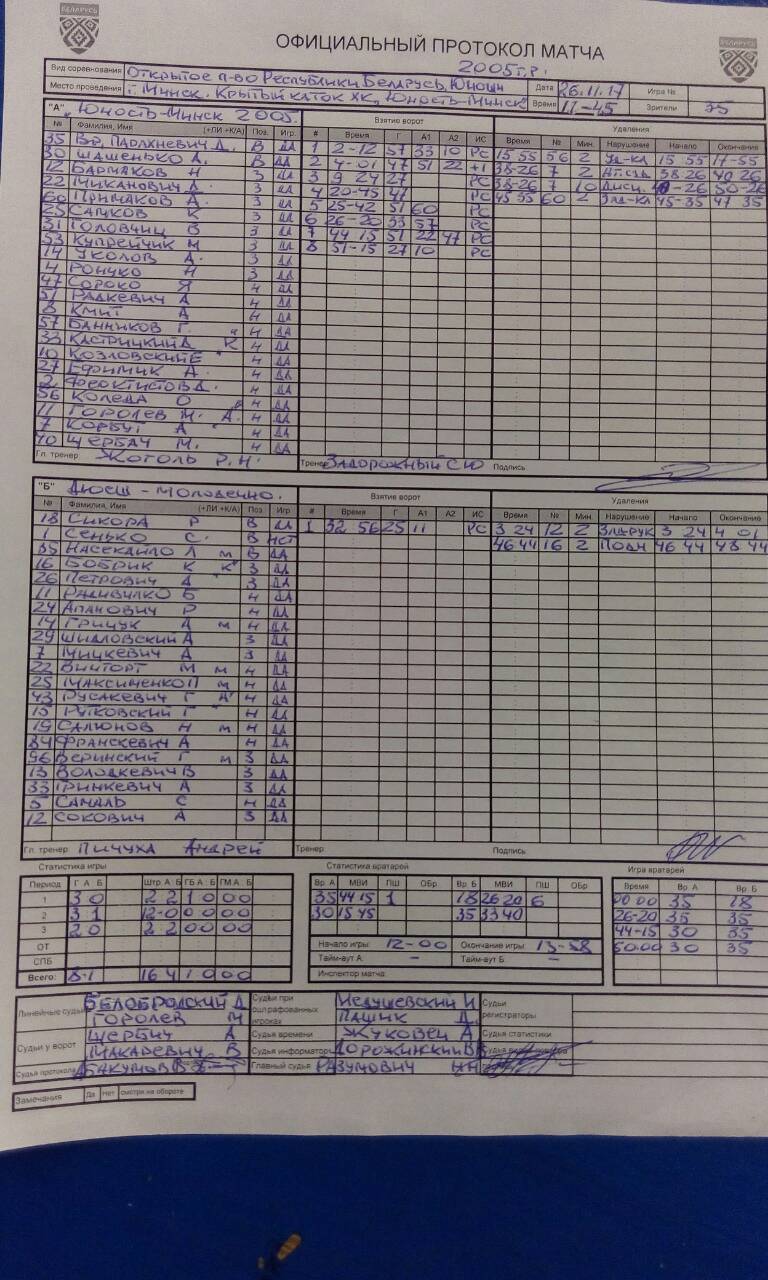 БЕЛАРУСЬ
БЕЛАРУСЬ
ОФИЦИАЛЬНЫЙ ПРОТОКОЛ МАТЧА
2005 г.р.
Вид соревнования Открытое п-во Республики Беларусь, Юноши Дата 26.11.17 Игра №
Место проведения г. Минск. Крытый каток ХК "Юность-Минск" Время 11-45 Зрители 35
"А" Юность-Минск 2005. Взятие ворот Удаления
№ Фамилия, Имя (+ЛИ +К/А) Поз. Игр. # Время Г А1 А2 ИС Время № Мин. Нарушение Начало Окончание
35 В ДА 1 2-12 57 33 10 РС 15 55 56 2 15 55 17-55
30 Шашенько А. В ДА 2 4-01 47 51 22 +1 38-26 7 2 38 26 40 26
12 Бармаков Н 3 ДА 3 9 24 27 РС 38-26 7 10 Дисц. 50-26
22 Миканович Д. 3 ДА 4 20-45 47 РС 45 35 60 2 45-35 47 35
60 Примаков А. 3 ДА 5 25-42 51 60 РС
25 Самков К 3 ДА 6 26-20 33 57 РС
31 Головчиц В 3 ДА 7 44 15 51 22 47 РС
53 Купрейчик М 3 ДА 8 51-15 27 10 РС
14 Уколов А. 3 ДА
4 Ронуко Н 3 ДА
47 Сороко Я Н ДА
51 Радкевич А Н ДА
8 Кмит А Н ДА
57 Банников Г. Н ДА
33 Кастрицкий А К Н ДА
10 Козловский Е Н ДА
27 Ефимик А. Н ДА
2 Феоктистов А. Н ДА
56 Коледа О Н ДА
11 Горолев М. А. Н ДА
7 Корбут А Н ДА
70 Щербач М. Н ДА
Гл. тренер Жоголь Р.Н. Тренер Задорожный С Ю Подпись
"Б" ДЮСШ - Молодечно. Взятие ворот Удаления
№ Фамилия, Имя (+ЛИ +К/А) Поз. Игр # Время Г А1 А2 ИС Время № Мин. Нарушение Начало Окончание
18 Сикора Р В ДА 1 32 56 25 11 РС 3 24 12 2 3 24 4 01
1 Сенько С. В НЕТ 46 44 16 2 Подн 46 44 48 44
35 Насекайло Л м В ДА
16 Бобрик К К 3 ДА
26 Петрович А 3 ДА
11 Радивилко Б Н ДА
24 Апанович Р Н ДА
14 Грицук А м Н ДА
29 Шидловский А 3 ДА
7 Мицкевич А 3 ДА
22 М м Н ДА
25 Максименко П м Н ДА
43 Русакевич Г А Н ДА
15 Рутковский Г Н ДА
19 Салюнов Н м Н ДА
84 Франскевич А Н ДА
96 Веринский Г м 3 ДА
13 Володкевич В 3 ДА
33 Гринкевич А 3 ДА
5 Самаль С Н ДА
12 Сокович А 3 ДА
Гл. тренер Пичуха Андрей Тренер Подпись
Статистика игры Статистика вратарей Игра вратарей
Период Г А Б Штр. А Б ГБ А Б ГМ А Б Вр. А МВИ ПШ ОБр Вр. Б МВИ ПШ ОБр Время Вр. А Вр. Б
1 3 0 2 2 1 0 0 0 35 44 15 1 18 26 20 6 00 00 35 18
2 3 1 12-0 0 0 0 0 30 15 45 35 33 40 26-20 35 35
3 2 0 2 2 0 0 0 0 44-15 30 35
ОТ Начало игры 12-00 Окончание игры 13-58 60.00 30 35
СПБ Тайм-аут А - Тайм-аут Б -
Всего: 8-1 16 4 1 0 0 0 Инспектор матча
Линейные судьи Белобродский Д Судьи при оштрафованных игроках Медушевский И Судьи регистраторы
Горолев М Пашик Д.
Судьи у ворот Щербич А Судья времени Жуковец А Судья статистики
Макаревич В Судья информатор Дорожинский В
Судья протокола Абакумов В Главный судья Разумович
Замечания Да Нет смотри на обороте